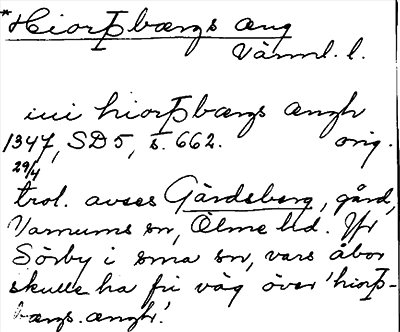 *Hiorþbærgs æng
Värml. l.
iui hiorþbærgs ængh
1347, SD 5, s. 662. orig.
29/4
trol. avses Gärdsberg, gård,
Varnums sn, Ölme hd. Jfr
Sörby i sma sn, vars åbor
skulle ha fri väg över 'hiorþ-
bærgs ængh'.